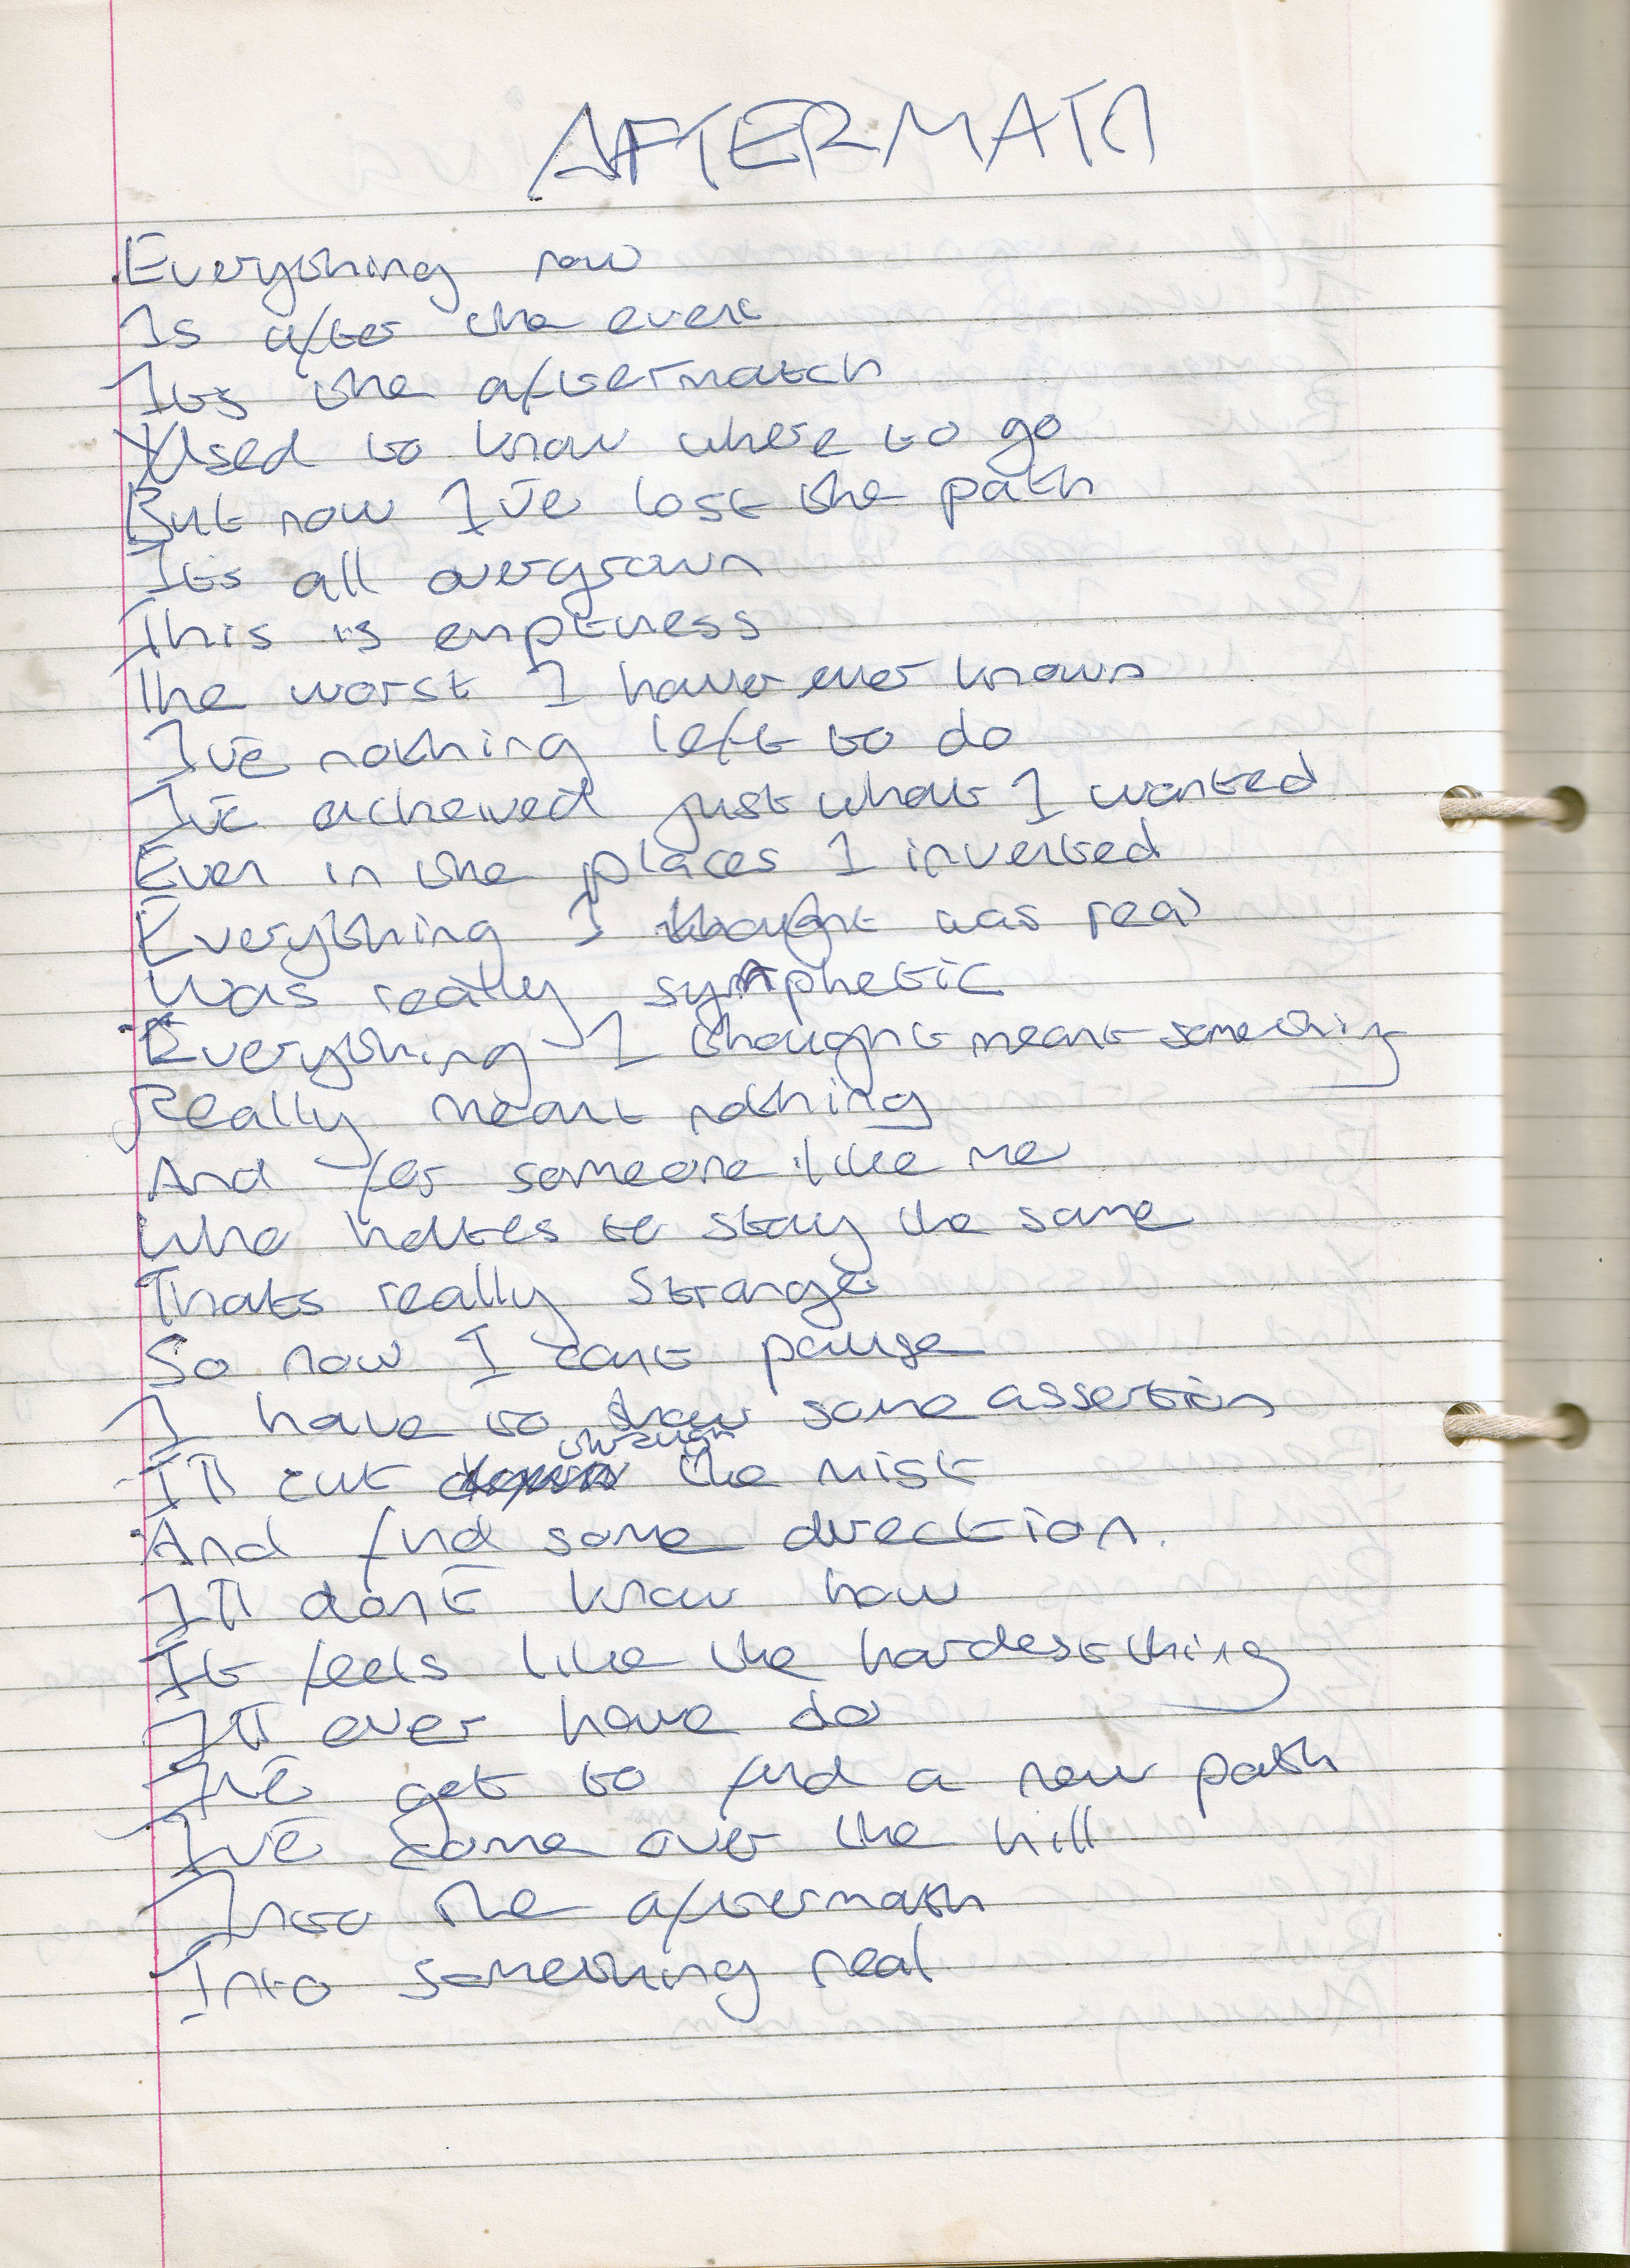 AFTERMATH
Everything now
Is after the event
Its the aftermatch
Used to know where to go
But now I've lost the path
Its all overgrown
This is emptness
The worst I have ever known
I've nothing left to do
I've acheived just what I wanted
Even in the places I invented
Everything I thought was real
Was really synphetic
Everything I thought meant something
Really meant nothing
And for someone like me
Who hates to stay the same
Thats really strange
So now I cant pause
I have to show some assertion
I'll cut through the mist
And find some direction.
I'll don't know how
It feels like the hardest thing
I'll ever have do
I've got to find a new path
I've come over the hill
Into the aftermath
Into something real